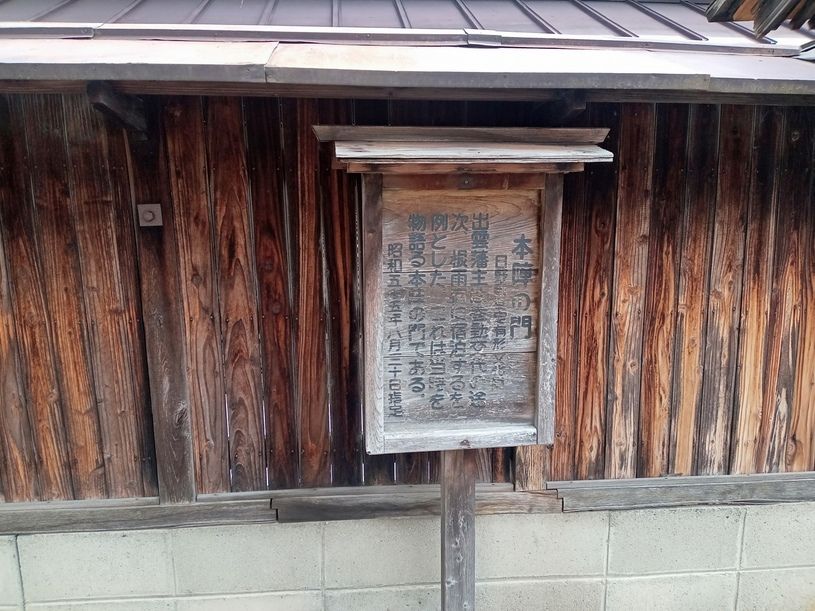 本陣の門
日野町指定有形文化財
出雲藩主は参勤交代の途
次、根雨に宿泊するを
例とした。これは当時を
物語る本陣の門である。
昭和五十三年八月三十日指定